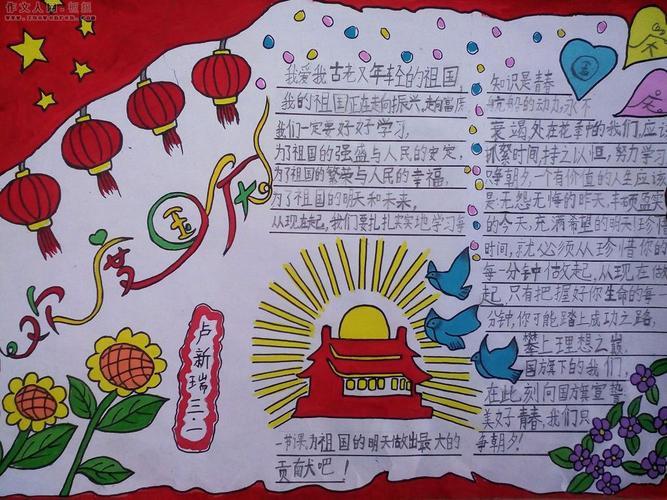 作文人网·恒组
www.zuowenren.com
欢度国庆
卢新瑞三.
我爱我古老又年轻的祖国,
我的祖国正在走向振兴,走向富庶
我们一定要好好学习,
为了祖国的强盛与人民的安定,
为了祖国的繁荣与人民的幸福,
为了祖国的明天和未来,
从现在起,我们要扎扎实实地学习每
一节课,为祖国的明天做出最大的
贡献吧!
知识是青春
航船的动力,永不
衰竭,处在花季的我们,应该
抓紧时间,持之以恒,努力学习
争朝夕,一个有价值的人生应该
是:无怨无悔的昨天,丰硕盈实
的今天,充满希望的明天!珍惜
时间,就必须从珍惜你的
每一分钟做起,从现在做
起,只有把握好你生命的每一
分钟,你可能踏上成功之路,
攀上理想之巅.
国旗下的我们,
在此刻向国旗宣誓
美好青春,我们只
争朝夕!